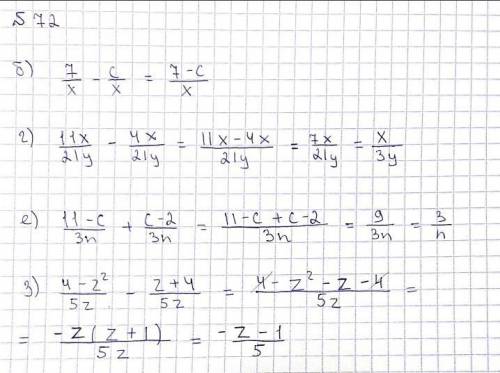 №72
б) 7/x - c/x = 7-c/x
г) 11x/21y - 4x/21y = 11x-4x/21y = 7x/21y = x/3y
е) 11-c/3n + c-2/3n = 11-c+c-2/3n = 9/3n = 3/n
з) 4-z²/5z - z+4/5z = 4-z²-z-4/5z =
= -z(z+1)/5z = -z-1/5